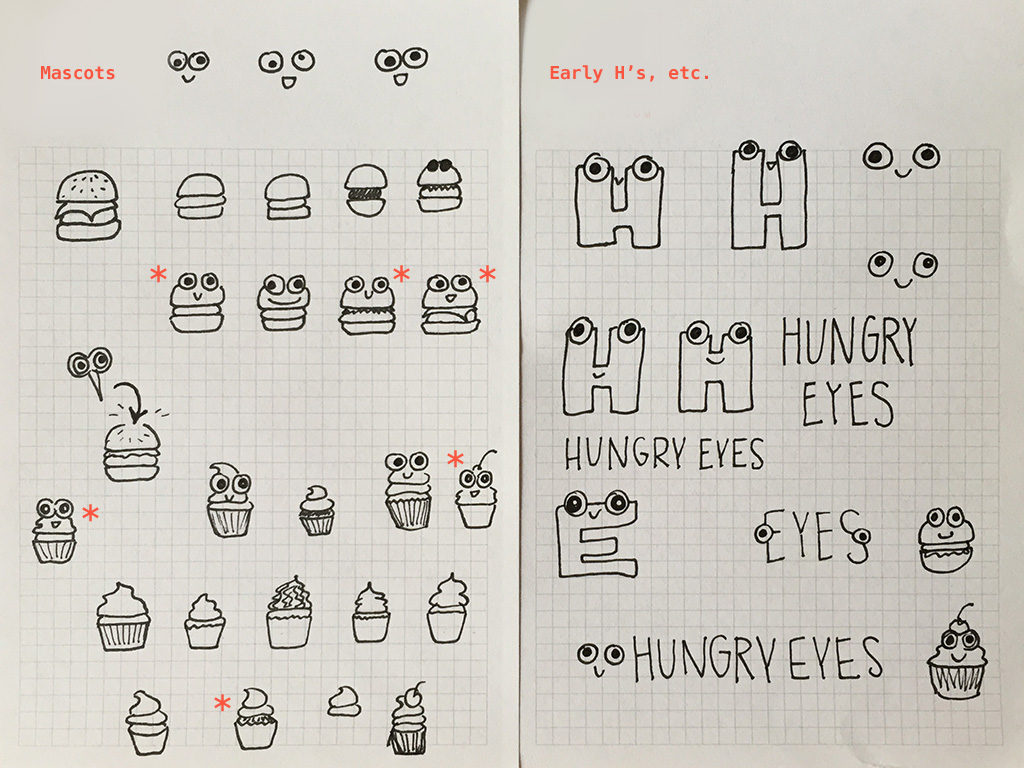 Mascots
*
*
*
*
*
*
Early H’s, etc.
H
H
H
H
HUNGRY
EYES
HUNGRY EYES
E
EYES
HUNGRY EYES